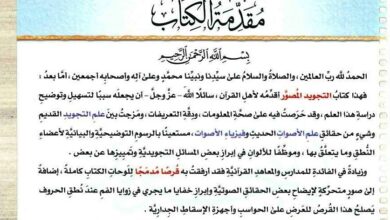 مُقَدِّمَةُ الكِتَابِ
بِسْمِ اللَّهِ الرَّحْمَنِ الرَّحِيمِ
الحمدُ للهِ ربِّ العالمين، والصلاةُ والسلامُ علىٰ سيِّدِنا ونبيِّنا محمدٍ وعلىٰ آلِهِ وأصحابِه أجمعين، أمّا بعدُ:
فهذا كتابُ التجويد المصوَّر أقدِّمُه لأهلِ القرآن، سائلًا اللهَ – عزَّ وجلَّ – أن يجعلَه سببًا لتسهيلِ وتوضيحِ
دراسةِ هذا العلم، وقد حَرَصتُ فيه علىٰ صحّةِ المعلوماتِ، ودقّةِ التعريفات، ومَزجتُ بينَ علمِ التجويدِ القديمِ
وشيءٍ من حقائقِ علمِ الأصواتِ الحديثِ وفيزياءِ الأصوات، مستعينًا بالرسومِ التوضيحيّةِ والبيانيّةِ لأعضاءِ
النُّطقِ وما يتعلّقُ بها، وموظِّفًا للألوانِ في إبرازِ بعضِ المسائلِ التجويديّةِ وتمييزِها عن بعض.
وزيادةً في الفائدةِ للمدارسِ والمعاهدِ القرآنيّةِ فقد أرفقتُ به قُرصًا مُدمَجًا للَوحاتِ الكتابِ كاملةً، إضافةً
إلىٰ صورٍ متحرِّكةٍ لإيضاحِ بعضِ الحقائقِ الصوتيّةِ وإبرازِ خفايا ما يجري في زوايا الفمِ عندَ نُطقِ الحروفِ
يصلُحُ هذا القُرصُ للعَرضِ علىٰ الحواسيبِ وأجهزةِ الإسقاطِ الجداريّة.